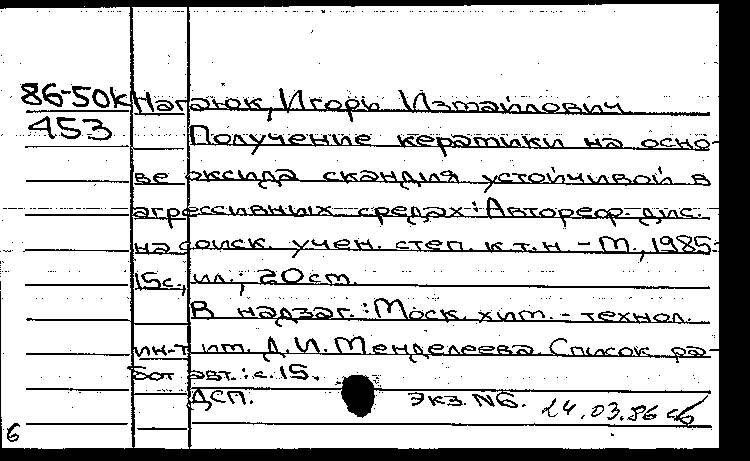 86-50к Нагаюк, Игорь Измайлович
453 Получение керамики на осно-
ве оксида скандия устойчивой в
агрессивных средах: Автореф. дис.
на соиск. учен. степ. к.т.н - М., 1985.-
15с., ил.; 20см.
В надзаг.: Моск. хим.-технол.
ин-т им. Д.И. Менделеева. Список ра-
бот авт.: с. 15.
ДСП. Экз. N6. 24.03.86
6